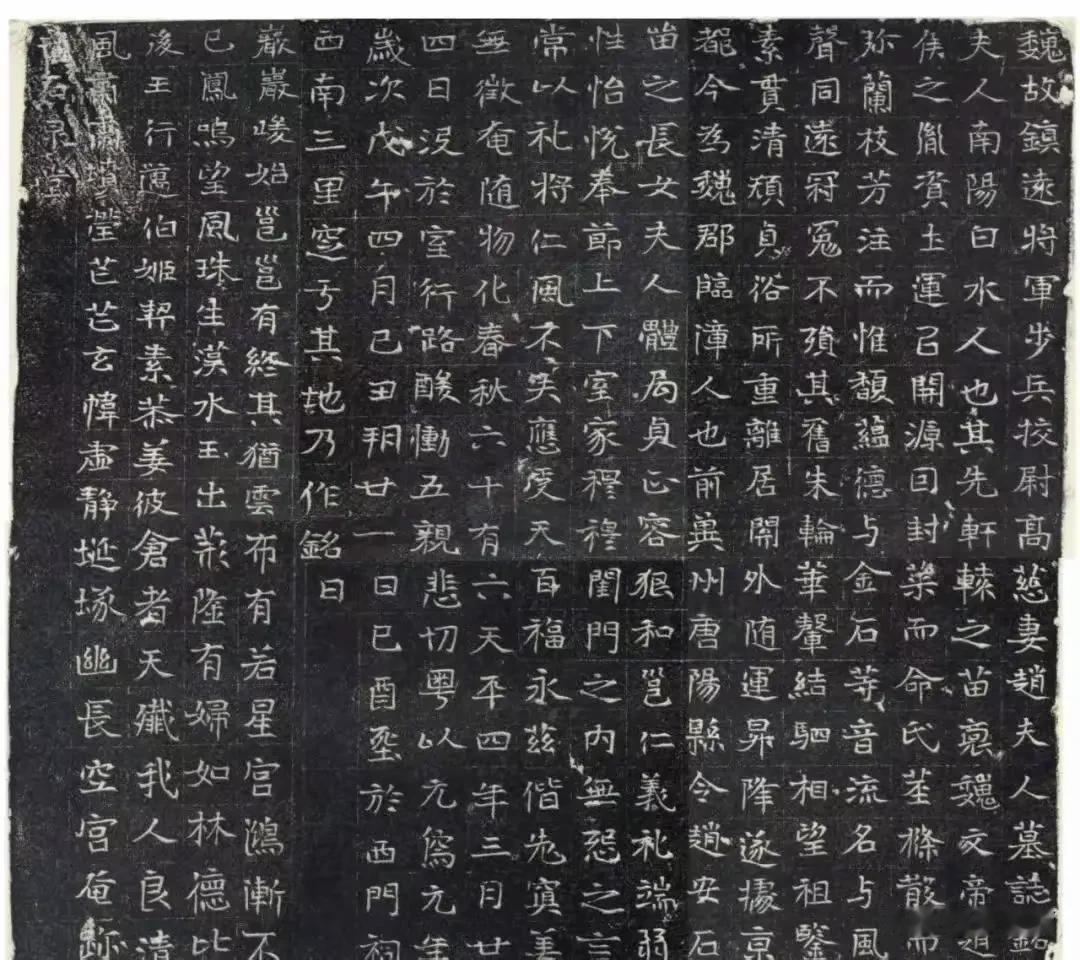 魏故鎮遠將軍步兵挍尉髙慈妻趙夫人墓誌銘
夫人南陽白水人也其先軒轅之苗裔魏文帝
侯之胤資土運已開源曰封梁而命氏莖條散而
弥蘭枝芳注而惟馥蘊德与金石等音流名与風
聲同遠冠冕不殞其舊朱輪華轂結駟相望祖鑒
素貫清頹貞俗所重離居關外随運昇降遂據京
都今為魏郡臨漳人也前兾州唐陽縣令趙安石
苗之長女夫人體局貞正容狠和邕仁義礼端弱
性怡恱奉節上下室家穆穆閨門之内無𢙣之言
常以礼將仁風不𡙇應受天百福永兹偕老寘羙
無徵奄随物化春秋六十有六天平四年三月廿
四日没於室行路酸慟五親悲切粤以元為元年
歲次戊午四月己丑朔廿一日己酉𦵏於西門祠
西南三里窆于其地乃作銘曰
巖巖峻始邕邕有終其猶雲布有若星宫鴻漸不
已鳳鳴望風珠生漢水玉出荆隆有婦如林德比
後王行邁伯姬契素恭姜彼倉者天殱我人良清
風墳瑩芒芒玄幃虚静埏塚幽長空宫奄
石